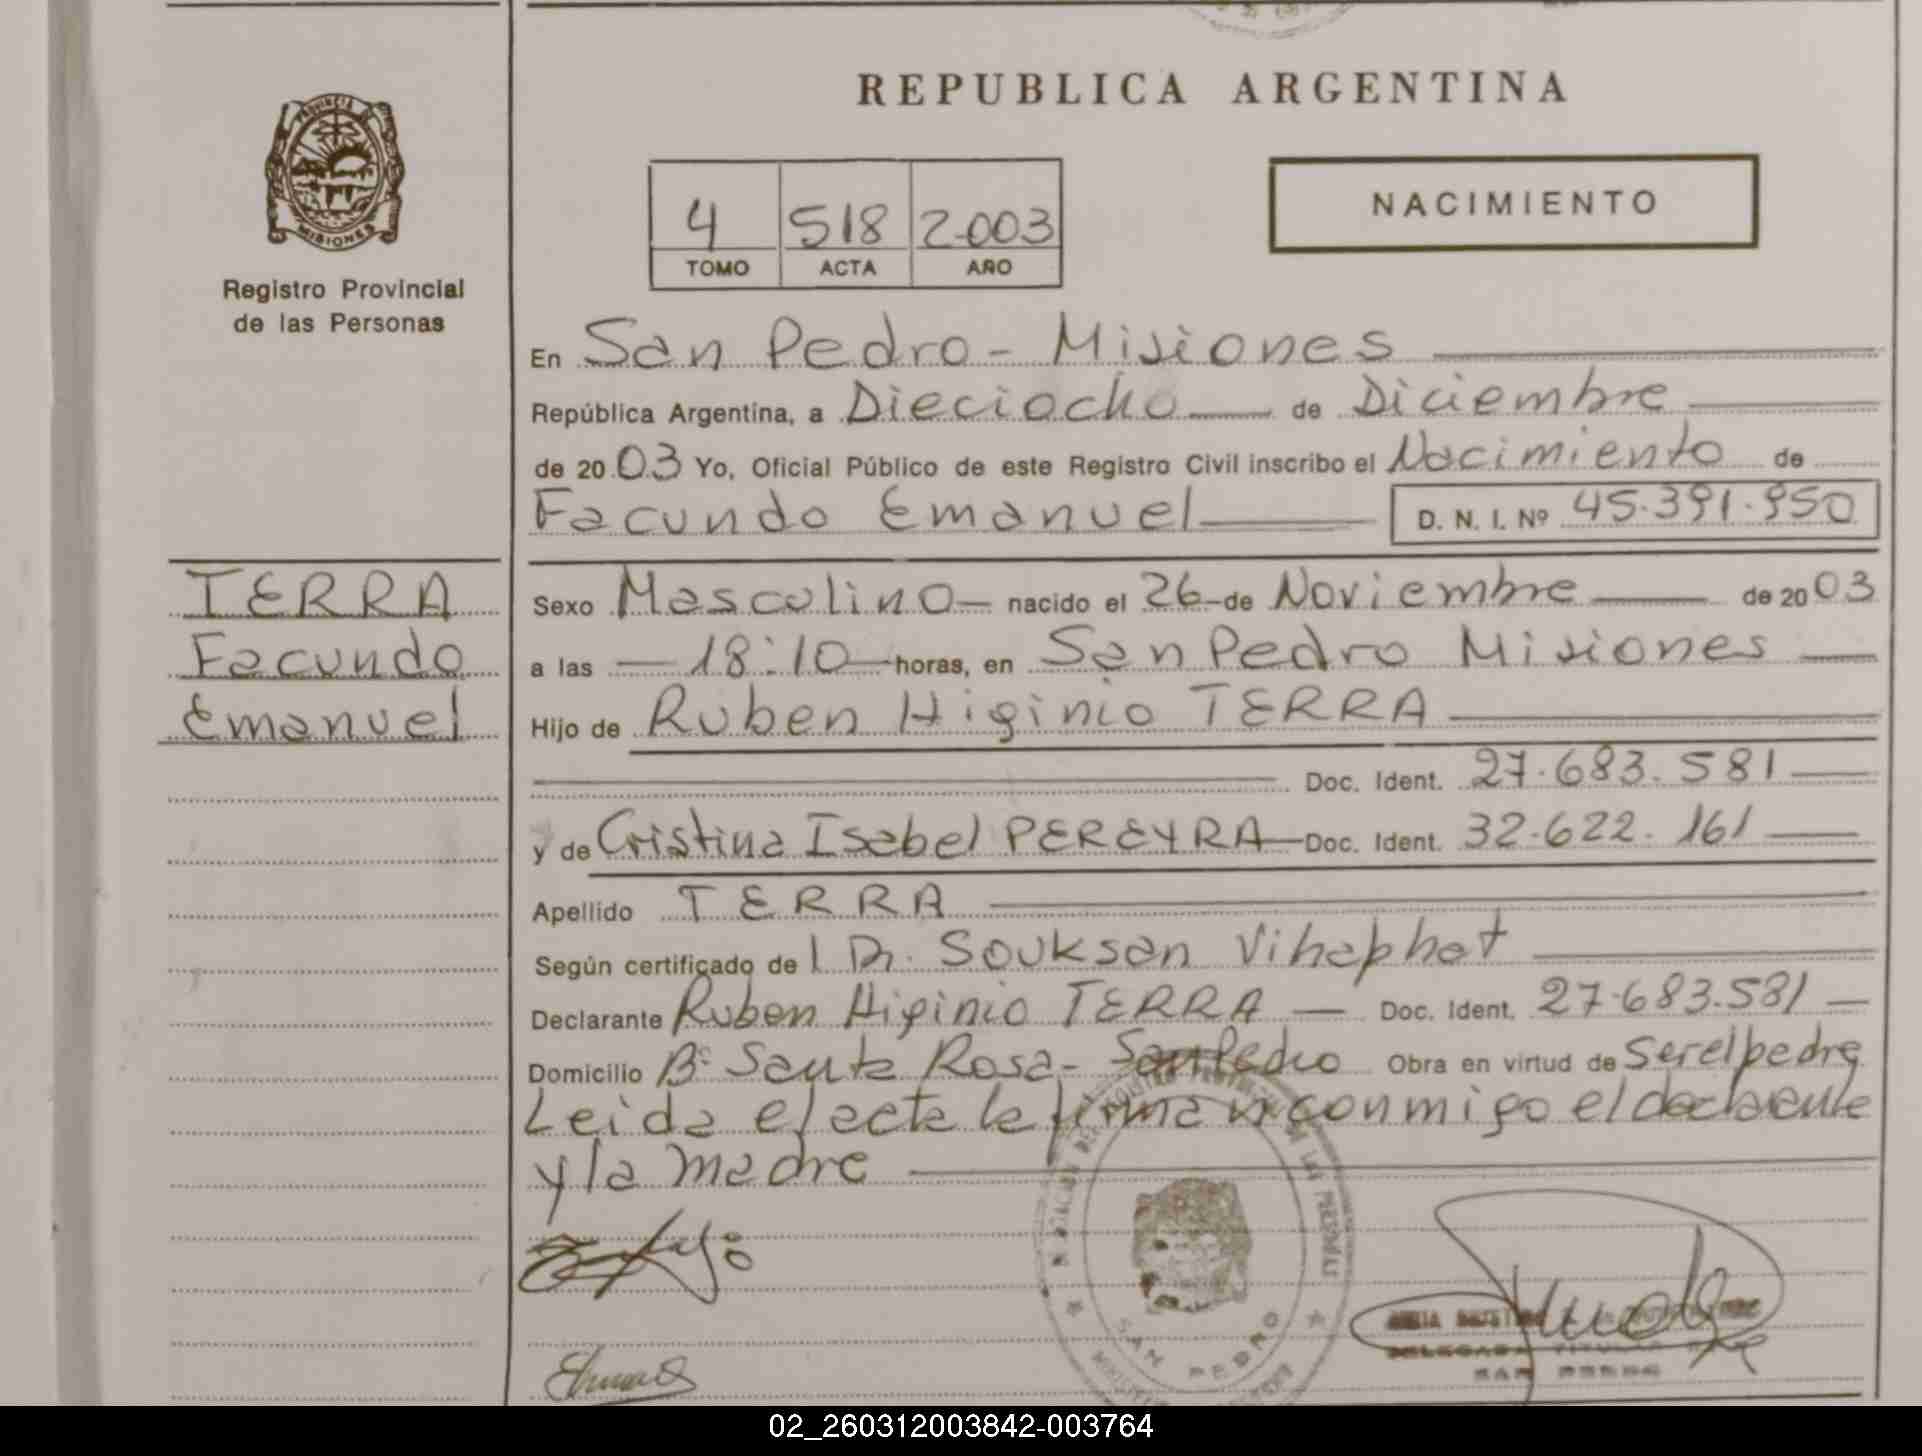 REPUBLICA ARGENTINA
PROVINCIA DE
MISIONES
Registro Provincial
de las Personas
4 518 2.003
TOMO ACTA AÑO
NACIMIENTO
En San Pedro - Misiones
República Argentina, a Dieciocho de Diciembre
de 2003 Yo, Oficial Público de este Registro Civil inscribo el Nacimiento de
Facundo Emanuel D. N. I. Nº 45.391.950
TERRA
Facundo
Emanuel
Sexo Masculino nacido el 26 de Noviembre de 2003
a las 18:10 horas, en San Pedro Misiones
Hijo de Ruben Higinio TERRA
Doc. Ident. 27.683.581
y de Cristina Isabel PEREYRA Doc. Ident. 32.622.161
Apellido TERRA
Según certificado de l Dr. Souksan Vihaphat
Declarante Ruben Higinio TERRA Doc. Ident. 27.683.581
Domicilio Bº Santa Rosa - San Pedro Obra en virtud de Ser el padre
Leida el acta la firman conmigo el declarante
y la madre
SAN PEDRO
DELEGADA TITULAR
SAN PEDRO
02_260312003842-003764